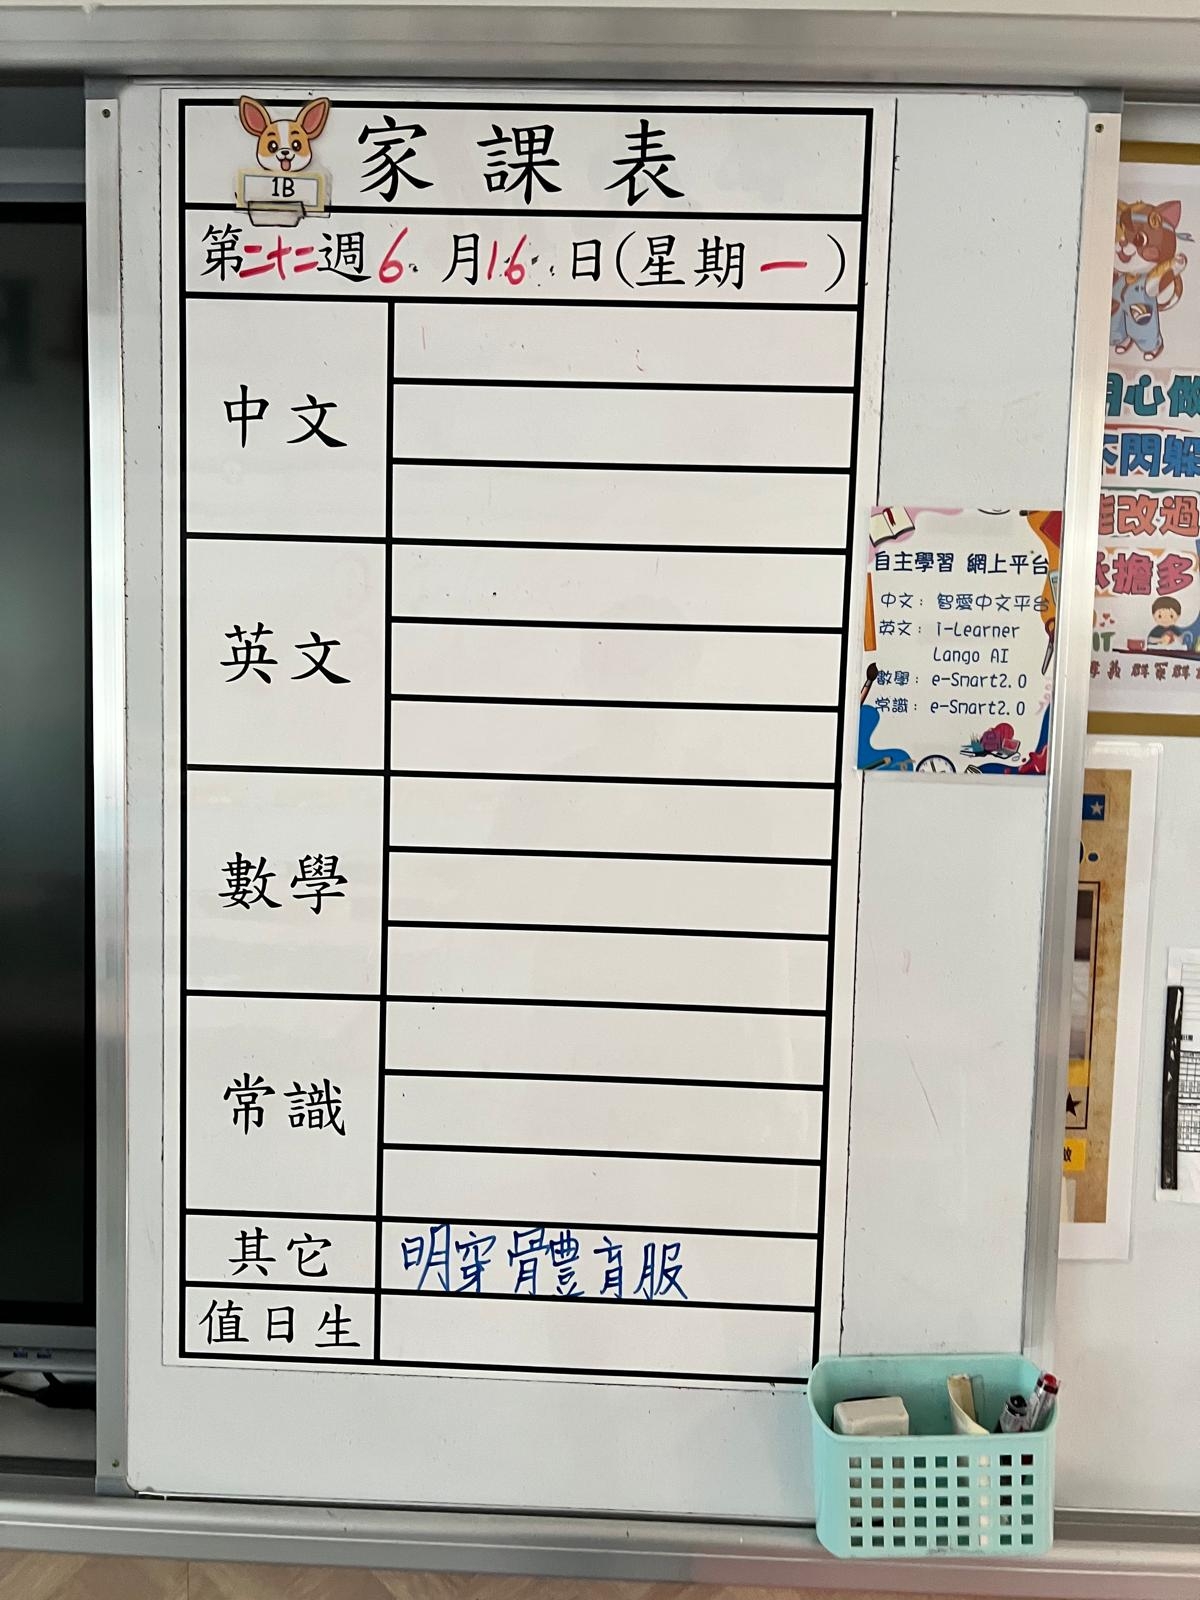 1B
家課表
第二十二週6月16日(星期一)
中文
英文
數學
常識
其它 明穿體育服
值日生
自主學習 網上平台
中文: 智愛中文平台
英文: i-Learner
Lango AI
數學: e-Smart2.0
常識: e-Smart2.0
心做
閃躲
改過
擔多